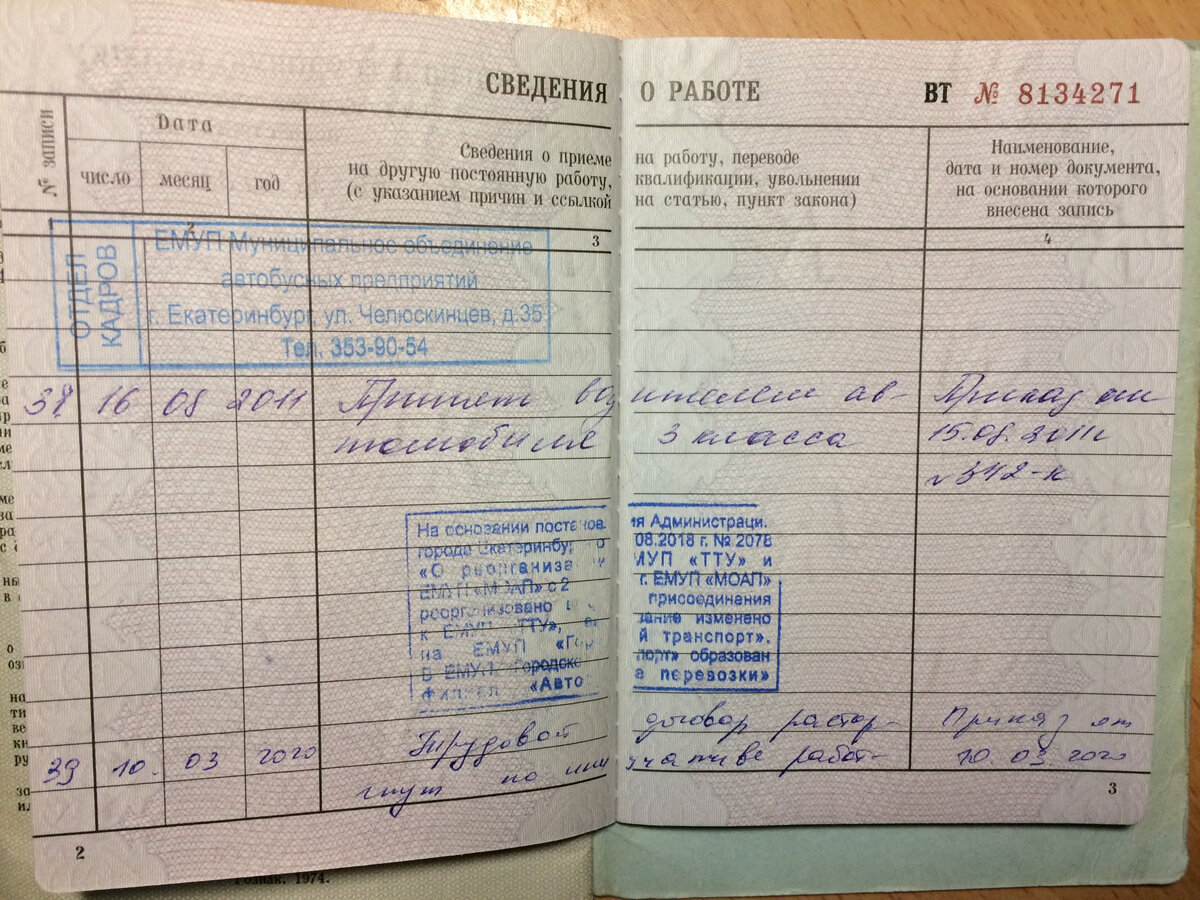 СВЕДЕНИЯ О РАБОТЕ
ВТ № 8134271
№ записи
Дата
число
месяц
год
Сведения о приеме на работу, переводе
на другую постоянную работу, квалификации, увольнении
(с указанием причин и ссылкой на статью, пункт закона)
Наименование,
дата и номер документа,
на основании которого
внесена запись
2
3
4
ОТДЕЛ
КАДРОВ
ЕМУП Муниципальное объединение
автобусных предприятий
г. Екатеринбург, ул. Челюскинцев, д.35
Тел. 353-90-54
16 08 2011 Принят водителем ав- Приказ от
томобиля 3 класса 15.08.2011г
№342-к
На основании постанов ия Администраци.
города Екатеринбу о 08.2018 г. № 2078
«О реорганиза и МУП «ТТУ» и
ЕМУП «МОАП» с 2 г. ЕМУП «МОАП»
реорганизовано присоединения
к ЕМУП ТТУ», ание изменено
на ЕМУП «Го й транспорт».
В ЕМУП Городско порт» образован
филиал «Авто а перевозки»
Трудовой договор растор- Приказ от
39 10. 03 2020 гнут по инициативе работ- 10.03.2020
2
3
Гознак. 1974.